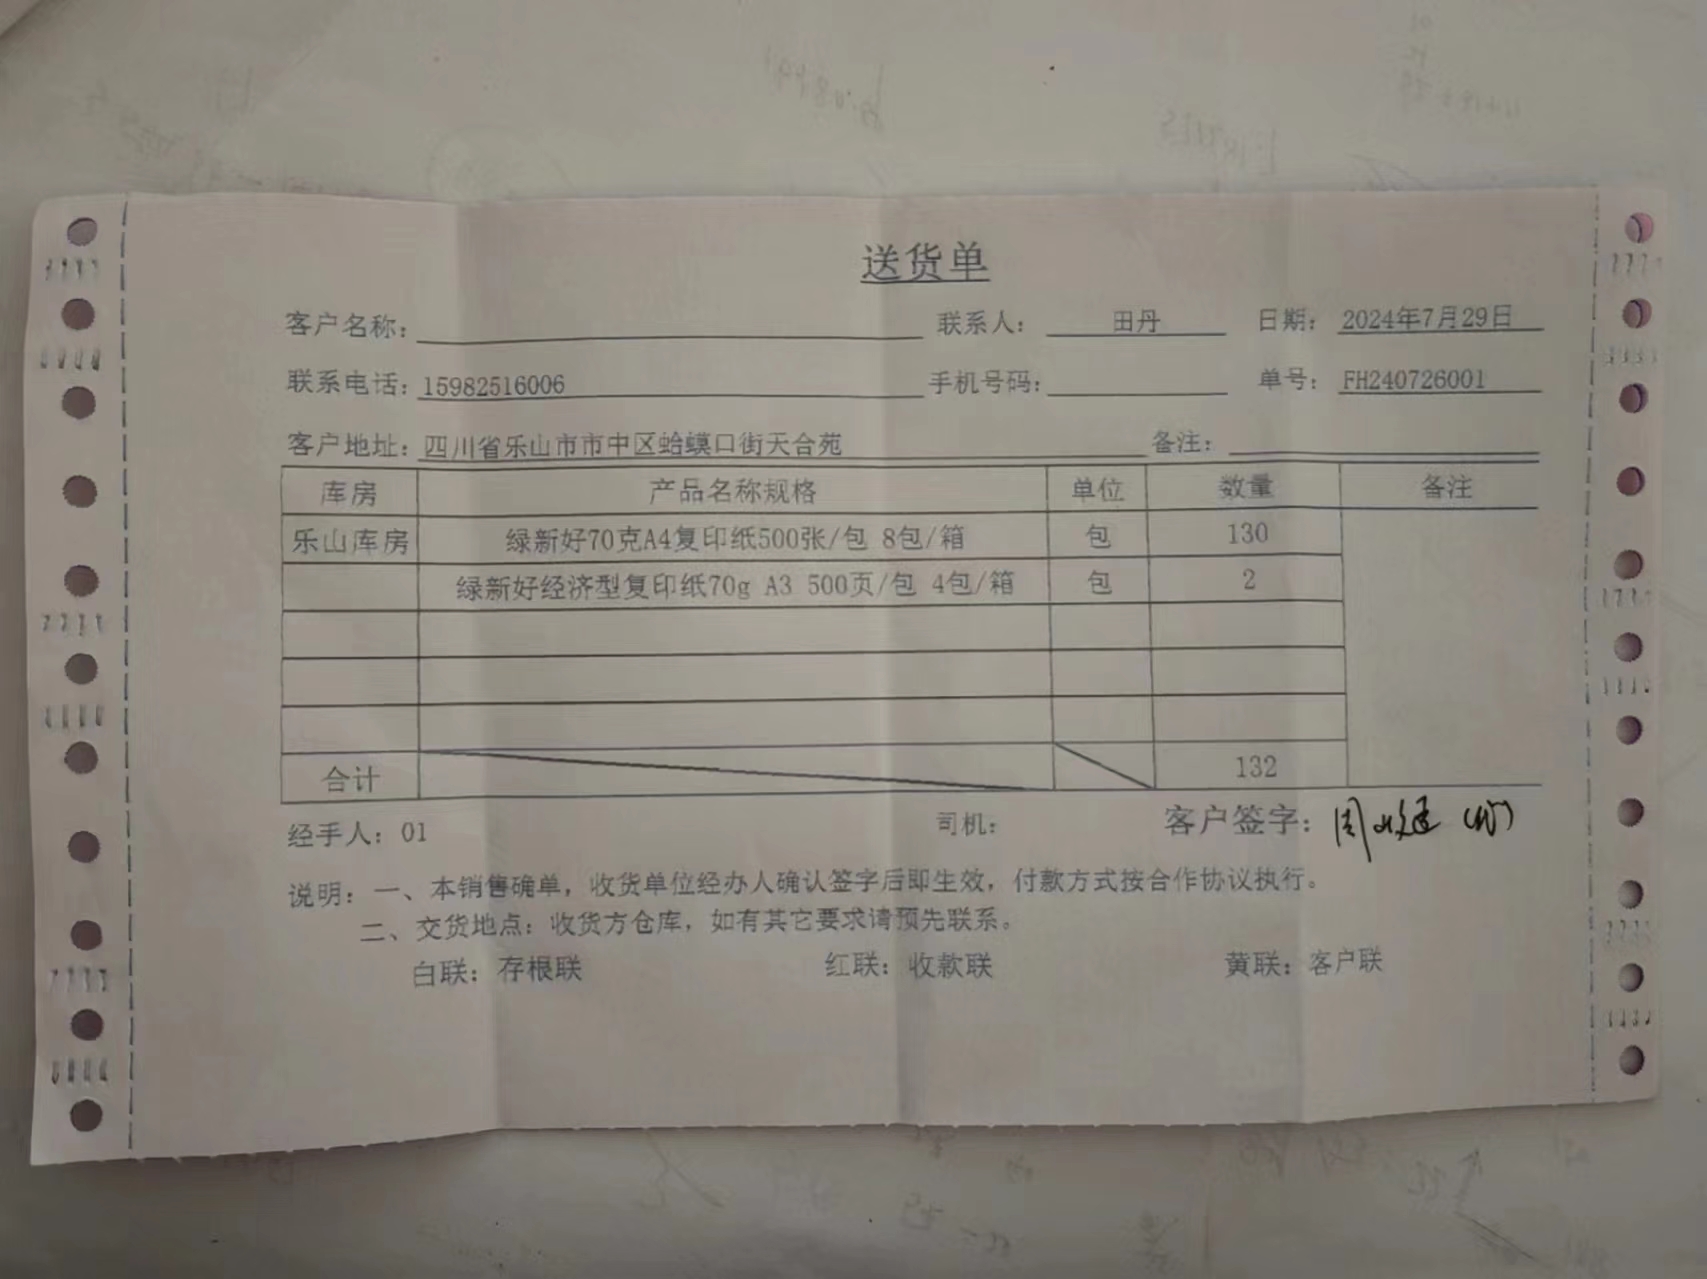 送货单
客户名称： 联系人： 田丹 日期： 2024年7月29日
联系电话：15982516006 手机号码： 单号： FH240726001
客户地址：四川省乐山市市中区蛤蟆口街天合苑 备注：
库房 产品名称规格 单位 数量 备注
乐山库房 绿新好70克A4复印纸500张/包 8包/箱 包 130
绿新好经济型复印纸70g A3 500页/包 4包/箱 包 2
合计 132
经手人：01 司机： 客户签字：周
说明：一、本销售确单，收货单位经办人确认签字后即生效，付款方式按合作协议执行。
二、交货地点：收货方仓库，如有其它要求请预先联系。
白联：存根联 红联：收款联 黄联：客户联